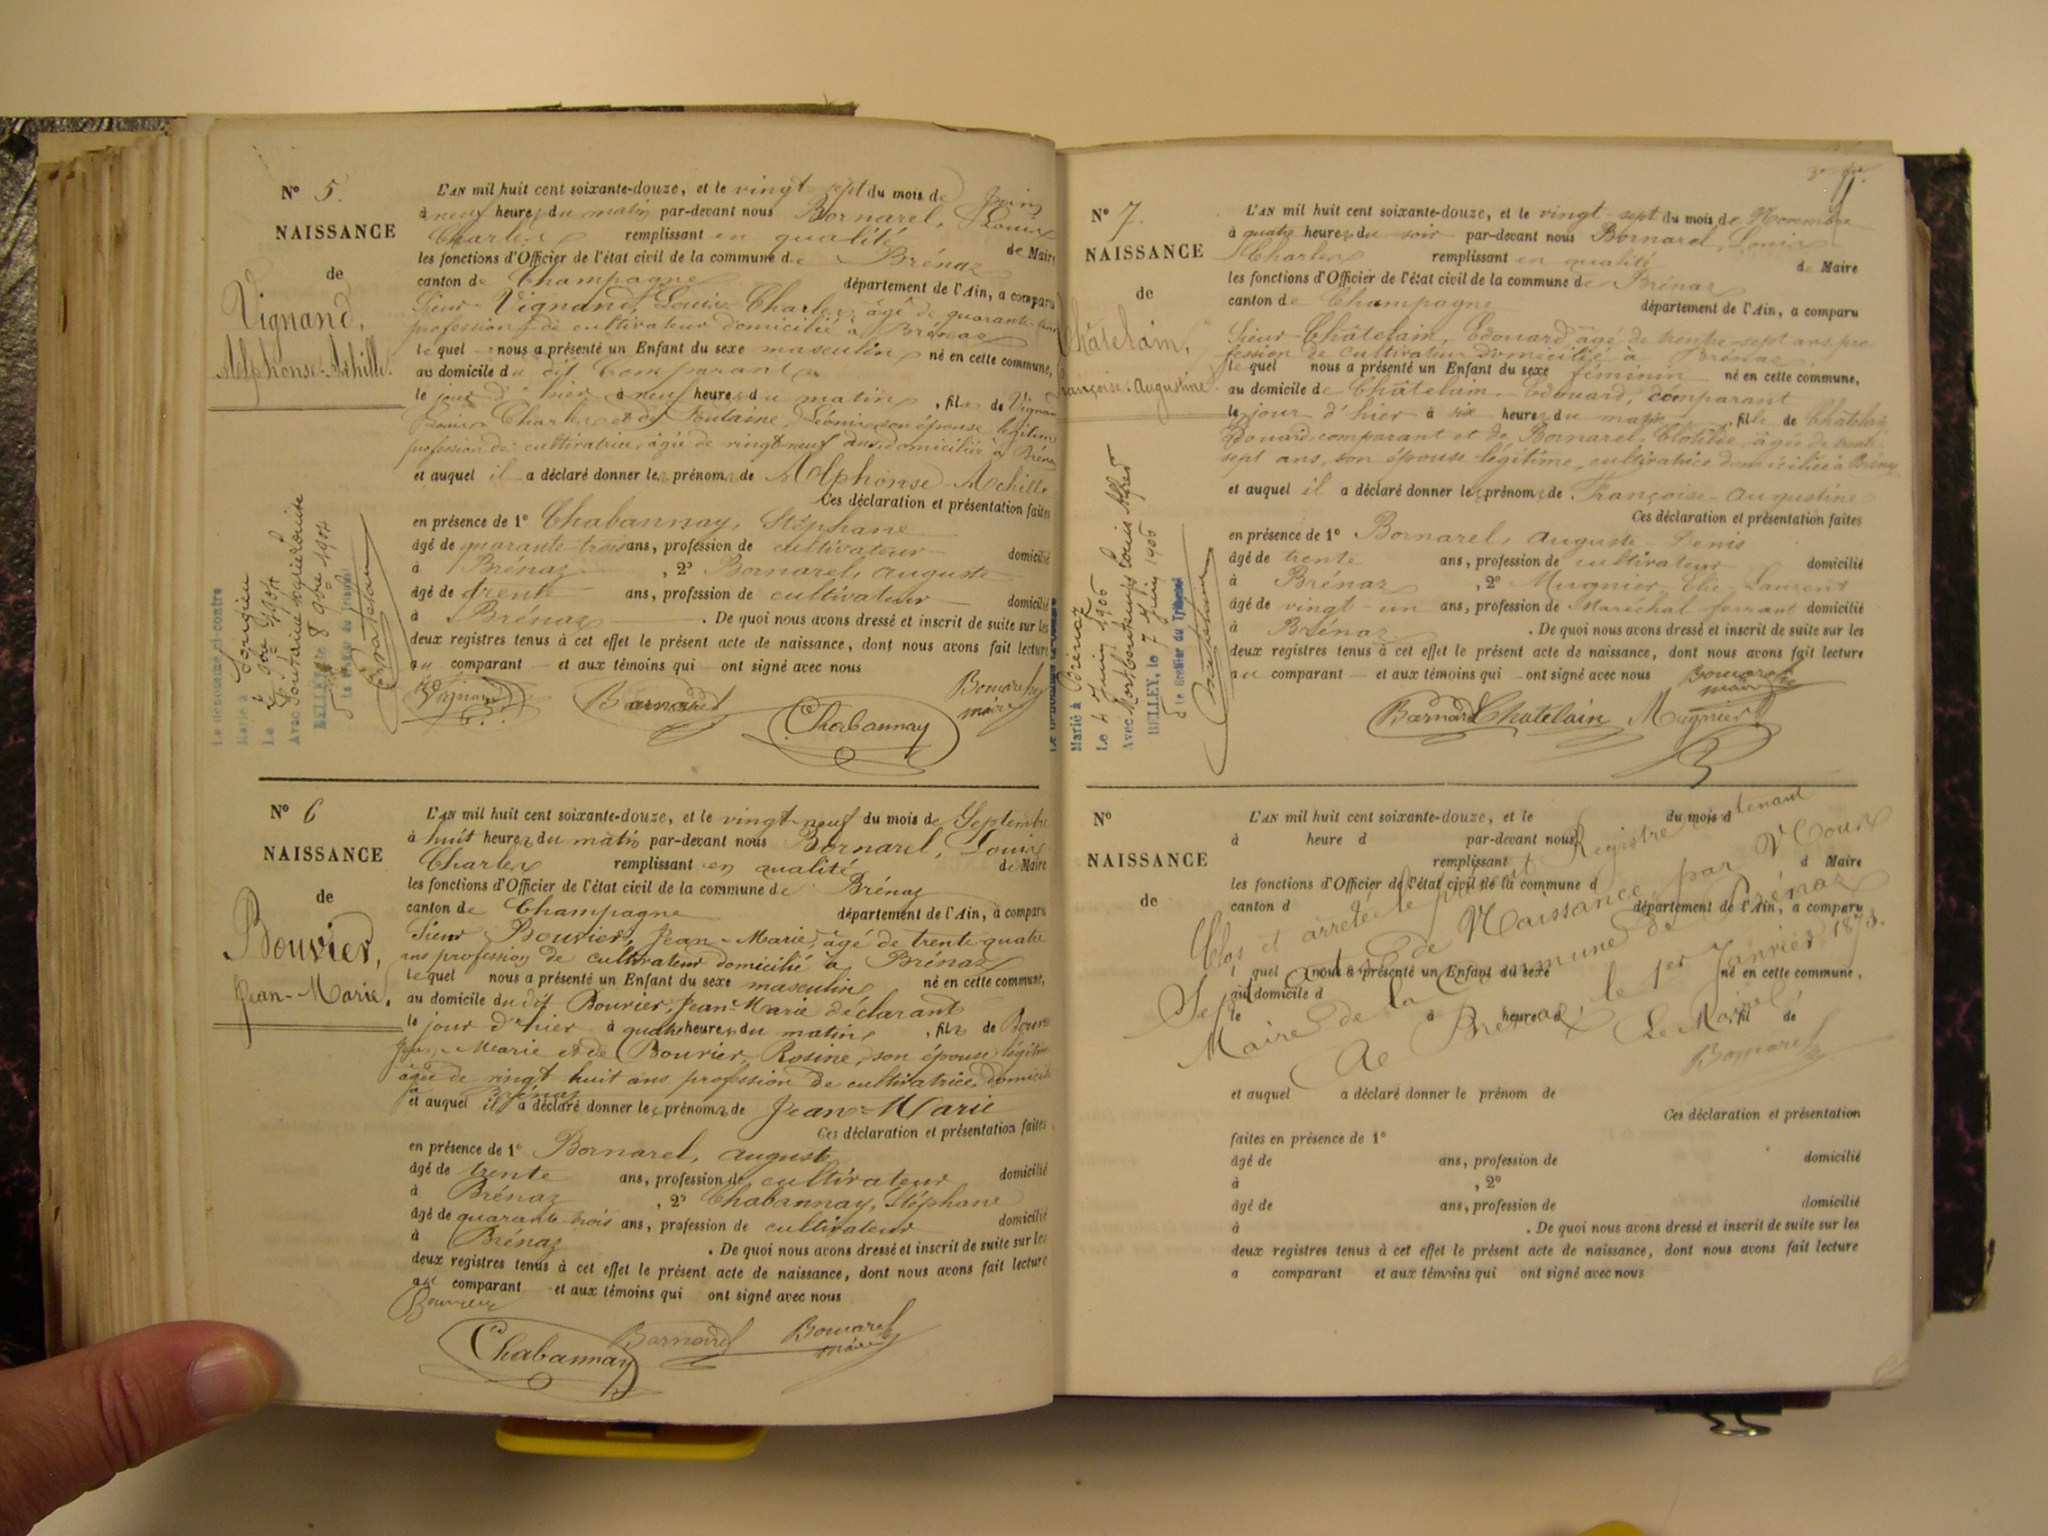 N° 5.
NAISSANCE
de
Vignand,
Alphonse-Achille.
L'AN mil huit cent soixante-douze, et le vingt sept du mois de Juin
à neuf heures du matin par-devant nous Bornarel, Louis
Charles remplissant en qualité de Maire
les fonctions d'Officier de l'état civil de la commune de Brénaz
canton de Champagne département de l'Ain, a comparu
Sieur Vignand, Louis Charles âgé de quarante
profession de cultivateur domicilié à Brénaz
lequel nous a présenté un Enfant du sexe masculin né en cette commune,
au domicile du dit Comparant
le jour d'hier à neuf heures du matin, fils de Vignand
Louis Charles et de Fontaine, Léonie son épouse légitime
profession de cultivatrice, âgée de vingt-neuf ans, domiciliés à Brénaz
et auquel il a déclaré donner les prénoms de Alphonse-Achille
Ces déclaration et présentation faites
en présence de 1° Chabannay, Stéphane
âgé de quarante-trois ans, profession de cultivateur domicilié
à Brénaz, 2° Bornarel, auguste
âgé de trente ans, profession de cultivateur domicilié
à Brénaz. De quoi nous avons dressé et inscrit de suite sur les
deux registres tenus à cet effet le présent acte de naissance, dont nous avons fait lecture
au comparant et aux témoins qui ont signé avec nous
Vignand
Bornarel
Chabannay
Bornarel
maire
Le dénommé ci-contre
Marié à Songieu
Le 1904
Avec Fontaine Marguerite
BELLEY, le 8 9bre 1904
le Greffier du Tribunal
N° 6
NAISSANCE
de
Bouvier,
Jean-Marie.
L'AN mil huit cent soixante-douze, et le vingt-neuf du mois de Septembre
à huit heures du matin par-devant nous Bornarel, Louis
Charles remplissant en qualité de Maire
les fonctions d'Officier de l'état civil de la commune de Brénaz
canton de Champagne département de l'Ain, a comparu
Sieur Bouvier, Jean-Marie, âgé de trente-quatre
ans profession de cultivateur domicilié à Brénaz
lequel nous a présenté un Enfant du sexe masculin né en cette commune,
au domicile du dit Bouvier, Jean-Marie déclarant
le jour d'hier à quatre heures du matin, fils de Bouvier
Jean-Marie et de Bouvier Rosine, son épouse légitime
âgée de vingt huit ans profession de cultivatrice domiciliée
à Brénaz
et auquel il a déclaré donner les prénoms de Jean-Marie
Ces déclaration et présentation faites
en présence de 1° Bornarel, auguste
âgé de trente ans, profession de cultivateur domicilié
à Brénaz, 2° Chabannay, Stéphane
âgé de quarante trois ans, profession de cultivateur domicilié
à Brénaz. De quoi nous avons dressé et inscrit de suite sur les
deux registres tenus à cet effet le présent acte de naissance, dont nous avons fait lecture
au comparant et aux témoins qui ont signé avec nous
Bouvier
Chabannay
Bornarel
Bornarel
maire
N° 7.
NAISSANCE
de
Châtelain,
Françoise-Augustine
L'AN mil huit cent soixante-douze, et le vingt-sept du mois de Novembre
à quatre heures du soir par-devant nous Bornarel, Louis
Charles remplissant en qualité de Maire
les fonctions d'Officier de l'état civil de la commune de Brénaz
canton de Champagne département de l'Ain, a comparu
Sieur Châtelain, Edouard âgé de trente-sept ans pro
fession de cultivateur domicilié à Brénaz
lequel nous a présenté un Enfant du sexe féminin né en cette commune,
au domicile de Châtelain Edouard, comparant
le jour d'hier à six heures du matin, fille de Châtelain
Edouard comparant et de Bornarel, Clotilde, âgée de trente
sept ans, son épouse légitime, cultivatrice domiciliée à Brénaz
et auquel il a déclaré donner les prénoms de Françoise-augustine
Ces déclaration et présentation faites
en présence de 1° Bornarel, Auguste-Denis
âgé de trente ans, profession de cultivateur domicilié
à Brénaz, 2° Mugnier Elie Laurent
âgé de vingt-un ans, profession de Maréchal ferrant domicilié
à Brénaz. De quoi nous avons dressé et inscrit de suite sur les
deux registres tenus à cet effet le présent acte de naissance, dont nous avons fait lecture
au comparant et aux témoins qui ont signé avec nous
Bornarel
maire
Bornard
Chatelain
Mugnier
Marié à Brénaz
Le 4 Juin 1906
Avec Louis Alfred
BELLEY, le 7 Juin 1906
le Greffier du Tribunal
N°
NAISSANCE
de
L'AN mil huit cent soixante-douze, et le du mois d
à heure d par-devant nous
remplissant d Maire
les fonctions d'Officier de l'état civil de la commune d
canton d département de l'Ain, a comparu
l quel nous a présenté un Enfant du sexe né en cette commune,
au domicile d
le à heure d fil de
et auquel a déclaré donner le prénom de
Ces déclaration et présentation
faites en présence de 1°
âgé de ans, profession de domicilié
à , 2°
âgé de ans, profession de domicilié
à . De quoi nous avons dressé et inscrit de suite sur les
deux registres tenus à cet effet le présent acte de naissance, dont nous avons fait lecture
a comparant et aux témoins qui ont signé avec nous
Clos et arrêté le présent Registre contenant
Sept actes de Naissance, par Nous
Maire de la Commune de Brénaz
A Brénaz, le 1er Janvier 1873.
Le Maire
Bornarel